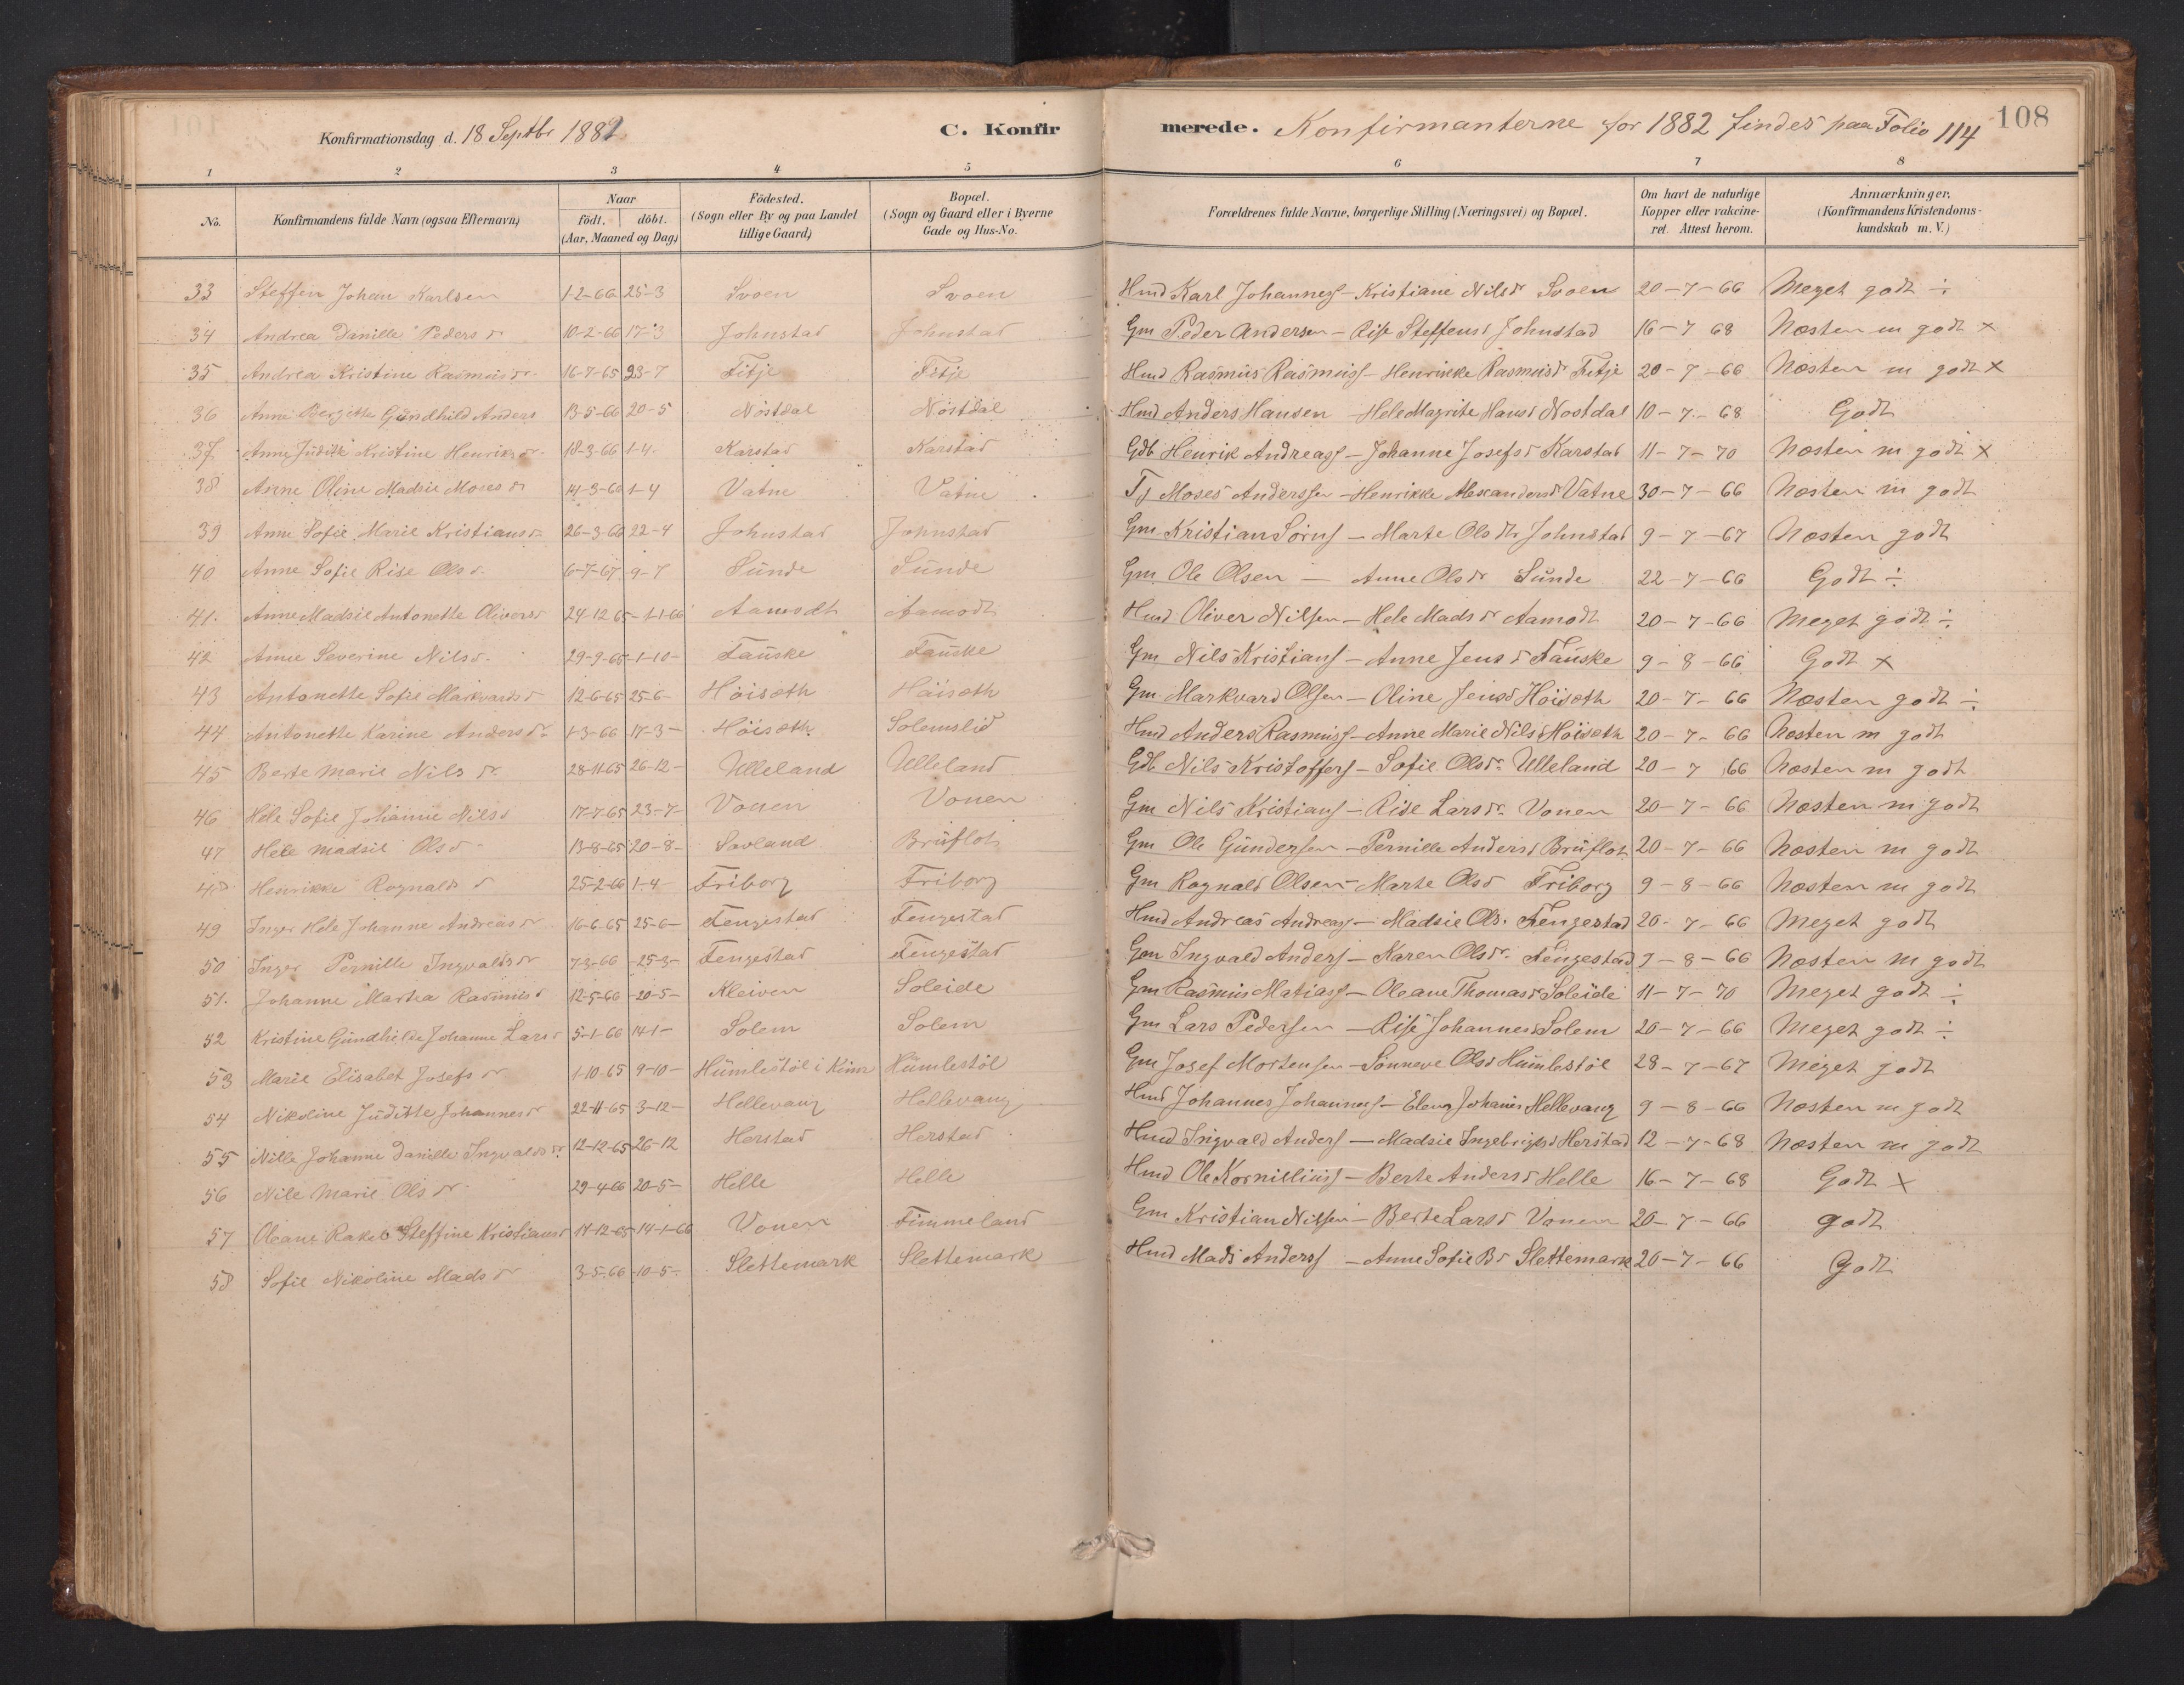 Konfirmationsdag d. 18 Septbr 1881 C. Konfirmerede. Konfirmanterne for 1882 findes paa Folio 114 108
1 2 3 4 5 6 7 8
No. Konfirmandens fulde Navn (ogsaa Efternavn) Naar födt. döbt. (Aar, Maaned og Dag) Födested. (Sogn eller By og paa Landet tillige Gaard) Bopæl. (Sogn og Gaard eller i Byerne Gade og Hus-No. Forældrenes fulde Navne, borgerlige Stilling (Næringsvei) og Bopæl. Om havt de naturlige Kopper eller vakcineret. Attest herom. Anmærkninger, (Konfirmandens Kristendomskundskab m. V.)
33 Steffen Johan Karlsen 1-2-66 25-3 Svoen Svoen Hmd Karl Johanness - Kristiane Nilsdr Svoen 20-7-66 Meget godt ÷
34 Andrea Danille Pedersdr 10-2-66 17-3 Johnstad Johnstad Gm Peder Andersen - Rise Steffensd Johnstad 16-7 68 Næsten m godt x
35 Andrea Kristine Rasmusdr 16-7-65 23-7 Fitje Fitje Hmd Rasmus Rasmuss - Henrikke Rasmusd Fitje 20-7-66 Næsten m godt x
36 Anne Bergitte Gundhild Anders 13-5-66 20-5 Nöstdal Nöstdal Hmd Anders Hansen - Hele Magrite Hansd Nostdal 10-7-68 Godt
37 Anne Juditte Kristine Henriksdr 18-3-66 1-4 Karstad Karstad Gdb Henrik Andreass - Johanne Josefsd Karstad 11-7-70 Næsten m godt x
38 Anne Oline Madsie Mosesdr 14-3-66 1-4 Vatne Vatne Tj Moses Anderssen - Henrikke Alexandersd Vatne 30-7-66 Næsten m godt
39 Anne Sofie Marie Kristiansdr 26-3-66 22-4 Johnstad Johnstad Gm Kristian Sörens - Marte Olsdtr Johnstad 9-7-67 Næsten godt
40 Anne Sofie Rise Olsd 6-7-67 9-7 Sunde Sunde Gm Ole Olsen - Anne Olsdr Sunde 22-7-66 Godt ÷
41. Anne Madsie Antonette Oliversd 24-12 65 - 1-1-66 Aamodt Aamodt Hmd Oliver Nilsen - Hele Madsdr Aamodt 20-7-66 Meget godt ÷
42 Anne Severine Nilsd 29-9-65 - 1-10 - Fauske Fauske Gm Nils Kristians - Anne Jensd Fauske 9-8-66 Godt x
43 Antonette Sofie Markvardsd 12-6-65 25-6- Höisæth Höisæth Gm Markvard Olsen - Oline Jensd Höisæth 20-7-66 Næsten godt ÷
44 Antonette Karine Andersdr 1-3-66 17-3- Höisæth Solemslid Hmd Anders Rasmuss - Anne Marie Nilsd Höisæth 20-7-66 Næsten m godt
45 Berte Marie Nilsdr 28-11-65 26-12- Ulleland Ulleland Gdb Nils Kristoffers - Sofie Olsdr Ulleland 20-7 66 Næsten m godt
46 Hele Sofie Johanne Nilsd 17-7-65 23-7- Vonen Vonen Gm Nils Kristians - Rise Larsdr Vonen 20-7-66 Næsten m godt
47 Hele Madsie Olsd 13-8-65 20-8- Savland Bruflot Gm Ole Gundersen - Pernille Andersd Bruflot 20-7-66 Næsten m godt
48 Henrikke Ragnaldsd 25-2-66 1-4- Friborg Friborg Gm Ragnald Olsen - Marte Olsd Friborg 9-8-66 Næsten m godt
49 Inger Hele Johanne Andreasdr 16-6-65 25-6- Fengestad Fengestad Hmd Andreas Andreass - Madsie Ols. Fengestad 20-7-66 Meget godt
50 Inger Pernille Ingvaldsdr 7-3-66 -25-3- Fengestad Fengestad Gm Ingvald Anders - Karen Olsdr Fengestad 9-8-66 Næsten m godt
51. Johanne Martha Rasmusd 12-5-66 -20-5- Kleiven Soleide Gm Rasmus Matiass - Oleane Thomasd Soleide 11-7-70 Meget godt ÷
52 Kristine Gundhilde Johanne Larsd 5-1-66 14-1- Solem Solem Gm Lars Pedersen - Rise Johannesd Solem 20-7-66 Meget godt ÷
53 Marie Elisabet Josefsdr 1-10-65 9-10- Humlestöl i Kinn Humlestöl Gm Josef Mortensen - Sönneve Olsd Humlestöl 28-7-67 Meget godt
54 Nikoline Juditte Johannesdr 22-11-65 3-12- Hellevang Hellevang Hmd Johannes Johanness - Elena Johanns Hellevang 9-8-66 Næsten m godt
55 Nille Johanne Danielle Ingvaldsdr 12-12-65 26-12 Herstad Herstad Hmd Ingvald Anders - Madsie Ingebrigtsd Herstad 12-7-68 Næsten m godt
56 Nile Marie Olsdr 29-4-66 20-5- Helle Helle Hmd Ole Kornilliuss - Berte Andersd Helle 16-7-68 Godt x
57 Oleane Rakel Steffine Kristiansd 17-12-65 -14-1-66 Vonen Timmeland Gm Kristian Nilsen - Berte Larsd Vonen 20-7-66 godt
58 Sofie Nikoline Madsdr 3-5-66 -10-5- Slettemark Slettemark Hmd Mads Anderss - Anne Sofie Bd Slettemark 20-7-66 Godt